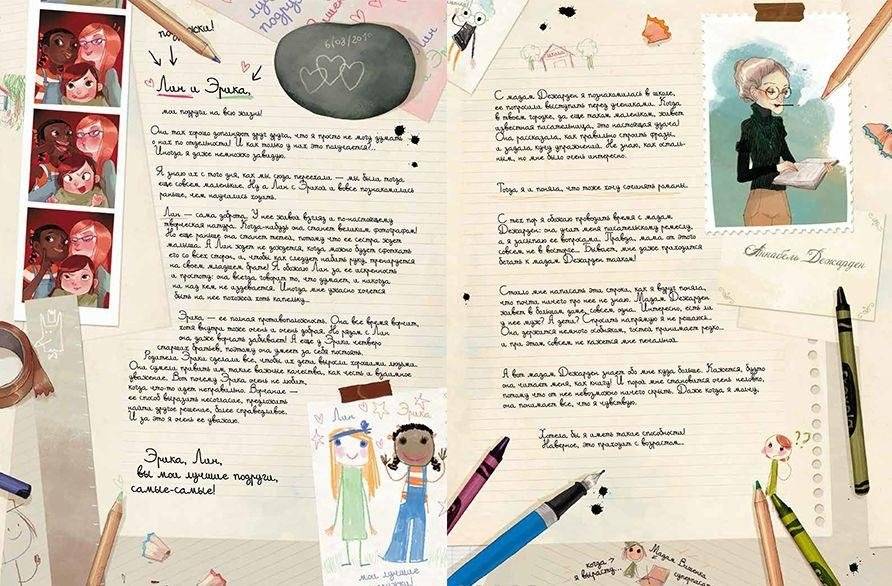 подружки!
Лин и Эрика,
мои подруги на всю жизнь!
Они так хорошо дополняют друг друга, что я просто не могу думать
о них по отдельности! И как только у них это получается?..
Иногда я даже немножко завидую.
Я знаю их с того дня, как мы сюда переехали — мы были тогда
еще совсем маленькие. Ну а Лин с Эрикой и вовсе познакомились
раньше, чем научились ходить.
Лин — сама доброта. У нее живой взгляд и по-настоящему
творческая натура. Когда-нибудь она станет великим фотографом!
Но еще раньше она станет тетей, потому что ее сестра ждет
малыша. А Лин ждет не дождется, когда можно будет сфоткать
его со всех сторон, и, чтобы как следует набить руку, тренируется
на своем младшем брате! Я обожаю Лин за ее искренность
и простоту: она всегда говорит то, что думает, и никогда
ни над кем не издевается. Иногда мне ужасно хочется
быть на нее похожей хоть капельку...
Эрика — ее полная противоположность. Она все время ворчит,
хотя внутри тоже очень и очень добрая. Но рядом с Лин
она даже ворчать забывает! А еще у Эрики четверо
старших братьев, поэтому она умеет за себя постоять.
Родители Эрики сделали все, чтобы их дети выросли хорошими людьми.
Они сумели привить им такие важные качества, как честь и взаимное
уважение. Вот почему Эрика очень не любит,
когда что-то идет неправильно. Ворчание —
ее способ выразить несогласие, предложить
найти другое решение, более справедливое.
И за это я очень ее уважаю.
Эрика, Лин,
вы мои лучшие подруги,
самые-самые!
Лин
Эрика
мои лучшие
С мадам Дежарден я познакомилась в школе,
ее попросили выступить перед учениками. Когда
в твоем городке, да еще таком маленьком, живет
известная писательница, это настоящая удача!
Она рассказала, как правильно строить фразы,
и задала кучу упражнений. Не знаю, как осталь-
ным, но мне было очень интересно.
Тогда я и поняла, что тоже хочу сочинять романы.
С тех пор я обожаю проводить время с мадам
Дежарден: она учит меня писательскому ремеслу,
а я засыпаю ее вопросами. Правда, мама от этого
совсем не в восторге... Бывает, мне даже приходится
бегать к мадам Дежарден тайком!
Стоило мне написать эти строки, как я вдруг поняла,
что почти ничего про нее не знаю. Мадам Дежарден
живет в большом доме, совсем одна. Интересно, есть ли
у нее муж? А дети? Спросить напрямую я не решаюсь...
Она держится немного особняком, гостей принимает редко...
и при этом совсем не кажется мне печальной.
А вот мадам Дежарден знает обо мне куда больше. Кажется, будто
она читает меня, как книгу! И порой мне становится очень неловко,
потому что от нее невозможно ничего скрыть. Даже когда я молчу,
она понимает все, что я чувствую.
Хотела бы я иметь такие способности!
Наверное, это приходит с возрастом...
Аннабель Дежарден
??
когда
я вырасту...
Мадам Вишенка